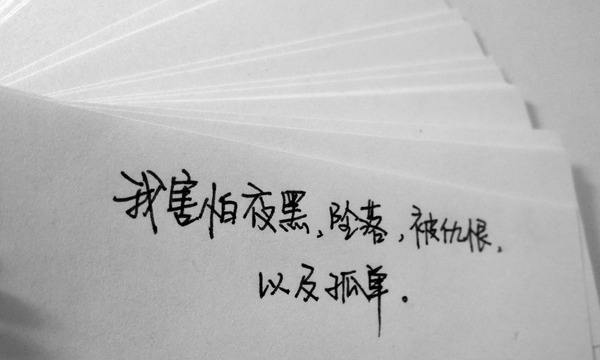 我害怕夜黑,坠落,被仇恨,
以及孤单.